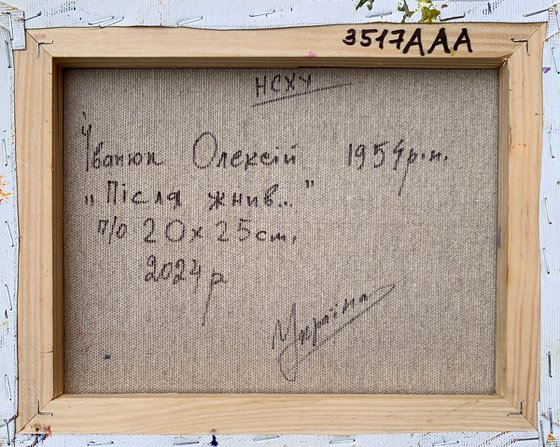 3517AAA
НСХУ
Іванюк Олексій 1954р.н.
„Після жнив..."
п/о 20х25см.
2024р
Україна